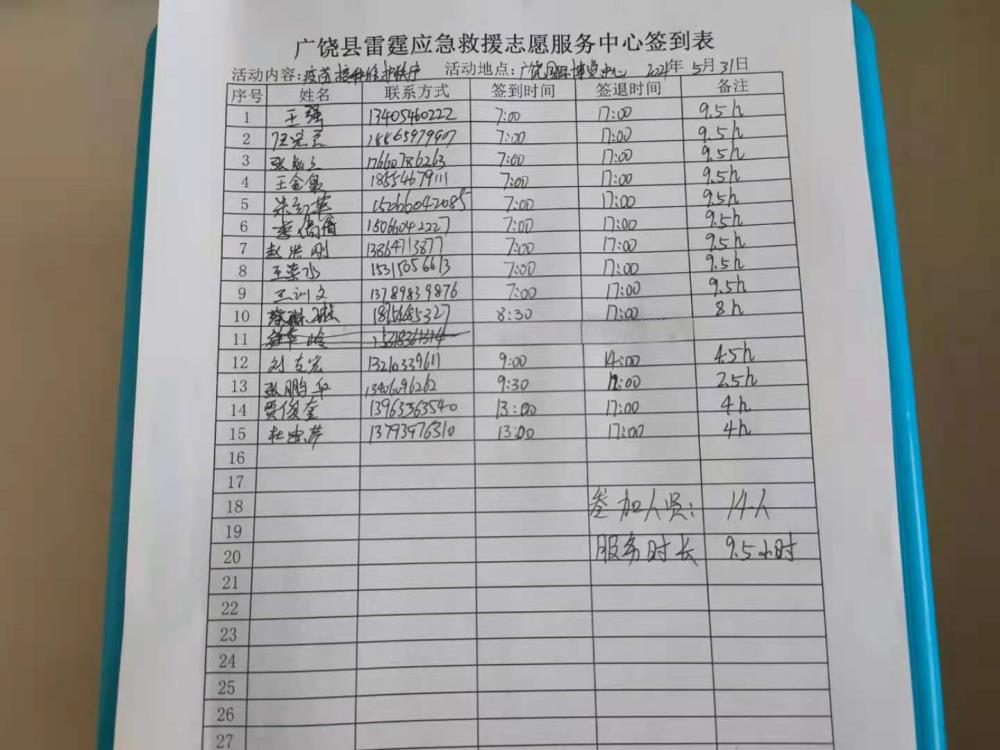 广饶县雷霆应急救援志愿服务中心签到表
活动内容：疫苗接种维护秩序 活动地点：广饶国际博览中心 2021年5月31日
序号 姓名 联系方式 签到时间 签退时间 备注
1 王强 13405460222 7:00 17:00 9.5h
2 18865979907 7:00 17:00 9.5h
3 张 17660786263 7:00 17:00 9.5h
4 王金泉 18554679111 7:00 17:00 9.5h
5 朱红革 15066042085 7:00 17:00 9.5h
6 李倩倩 15066042227 7:00 17:00 9.5h
7 赵洪刚 13864713877 7:00 17:00 9.5h
8 王荣水 15315056613 7:00 17:00 9.5h
9 王训文 13789839876 7:00 17:00 9.5h
10 8:30 17:00 8h
11
12 刘吉宏 13210339611 9:00 14:00 4.5h
13 张鹏华 13406096262 9:30 12:00 2.5h
14 贾俊奎 13963563540 13:00 17:00 4h
15 杜 13793976310 13:00 17:00 4h
16
17
18 参加人员： 14人
19
20 服务时长 9.5小时
21
22
23
24
25
26
27